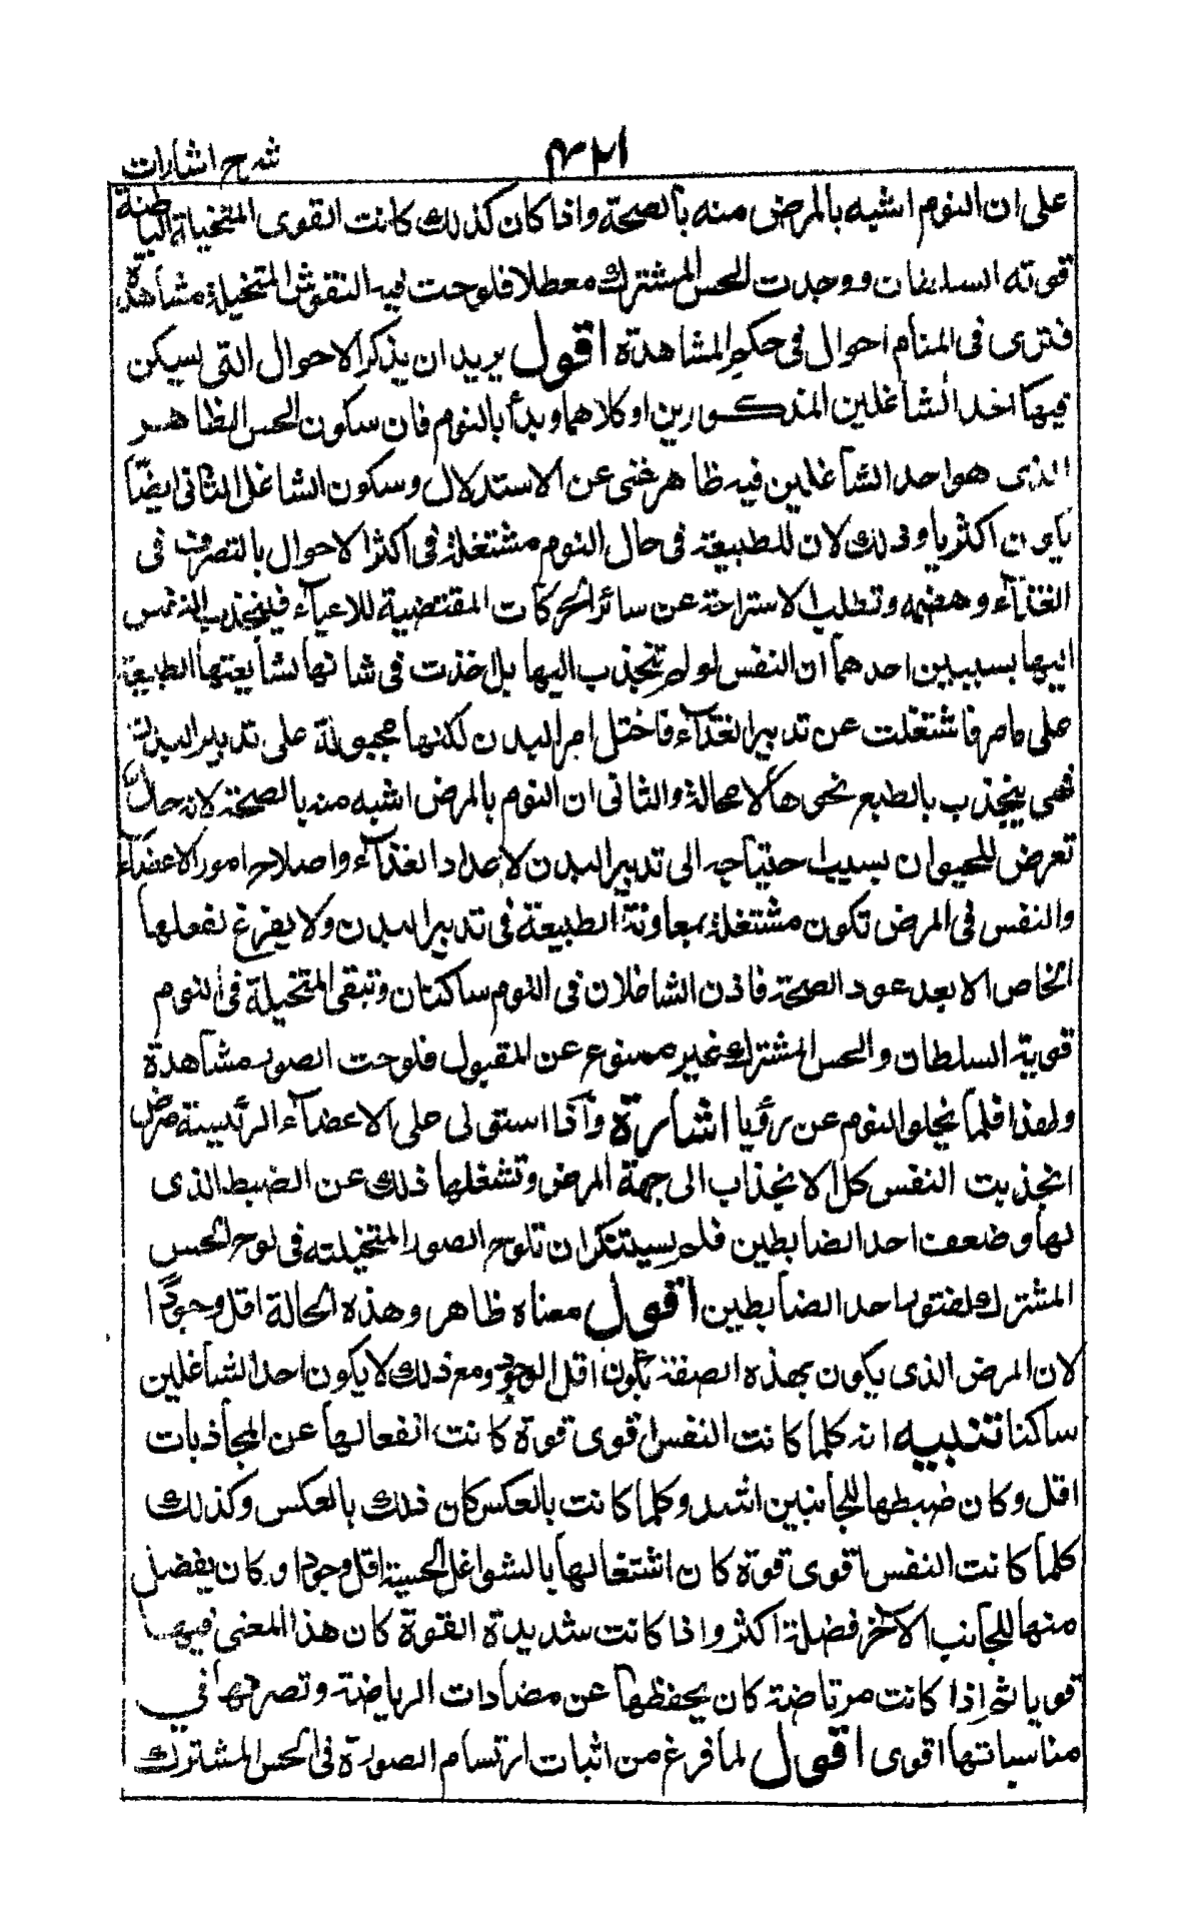 شرح اشارات
على ان النوم اشبه بالمرض منه بالصحة واذا كان كذلك كانت القوى المتخيلة الباطنة
قويه السلطان ووجدت الحس المشترك معطلا فلوحت فيه النقوش المتخيلة مشاهدة
فترى فى المنام احوال فى حكم المشاهدة اقول يريد ان يذكر الاحوال التى يسكن
فيها احد الشاغلين المذكورين او كلاهما وبدأ بالنوم فان سكون الحس الظاهر
الذى هو احد الشاغلين فيه ظاهر غنى عن الاستدلال وسكون الشاغل الثانى ايضًا
يكون اكثريا وذلك لان الطبيعة فى حال النوم مشتغلة فى اكثر الاحوال بالتصرف فى
الغذآء وهضمه وتطلب الاستراحة عن سائر الحركات المقتضية للاعيآء فينجذب النفس
اليها بسببين احدهما ان النفس لو لم تنجذب اليها بل اخذت فى شانها لشايعتها الطبيعة
على ما مر فاشتغلت عن تدبير الغذآء فاختل امر البدن لكنها مجبولة على تدبير البدن
فهى ينجذب بالطبع نحوها لا محالة والثانى ان النوم بالمرض اشبه منه بالصحة لانه حال
تعرض للحيوان بسبب احتياجه الى تدبير البدن لاعداد الغذآء واصلاح امور الاعضآء
والنفس فى المرض تكون مشتغلة بمعاونة الطبيعة فى تدبير البدن ولا يفرغ لفعلها
الخاص الا بعد عود الصحة فاذن الشاغلان فى النوم ساكنان وتبقى المتخيلة فى النوم
قوية السلطان والحس المشترك غير ممنوع عن القبول فلوحت الصور مشاهدة
ولهذا قلما يخلو النوم عن رؤيا اشارة واذا استولى على الاعضآء الرئيسة مرض
انجذبت النفس كل الانجذاب الى جهة المرض وتشغلها ذلك عن الضبط الذى
لها وضعف احد الضابطين فلم يستنكر ان تلوح الصور المتخيلة فى لوح الحس
المشترك لفتور احد الضابطين اقول معناه ظاهر وهذه الحالة اقل وجودا
لان المرض الذى يكون بهذه الصفة يكون اقل الوجود ومع ذلك لا يكون احد الشاغلين
ساكنا تنبيه انه كلما كانت النفس اقوى قوة كانت انفعالها عن المجاذبات
اقل وكان ضبطها للجانبين اشد وكلما كانت بالعكس كان ذلك بالعكس وكذلك
كلما كانت النفس اقوى قوة كان اشتغالها بالشواغل الحسية اقل وجودا وكان يفضل
منها للجانب الاخر فضلة اكثر واذا كانت شديدة القوة كان هذا المعنى فيها
قويا ثم اذا كانت مرتاضة كان يحفظها عن مضادات الرياضة وتصرفها فى
مناسباتها اقوى اقول لما فرغ من اثبات ارتسام الصورة فى الحس المشترك